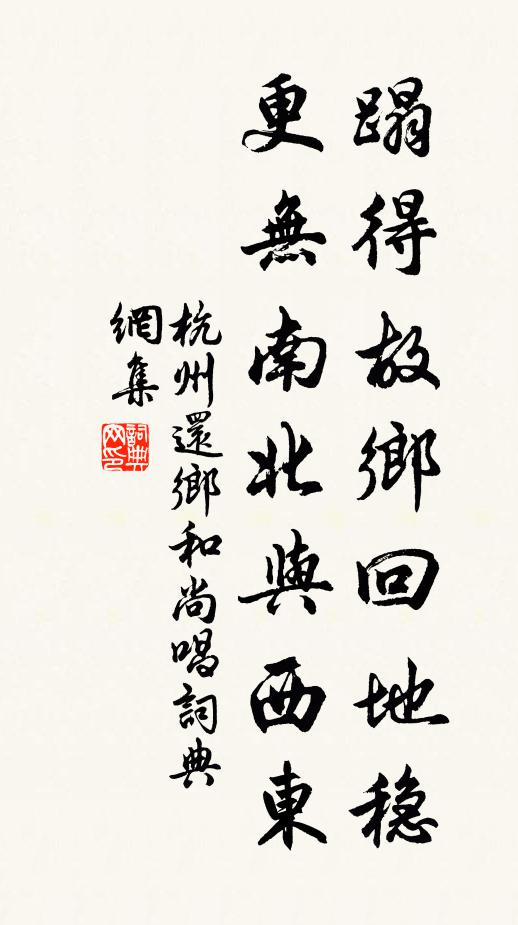 蹋得故鄉回地稳
更無南北與西東
杭州還鄉和尚唱詞典
網集
詞典
网印